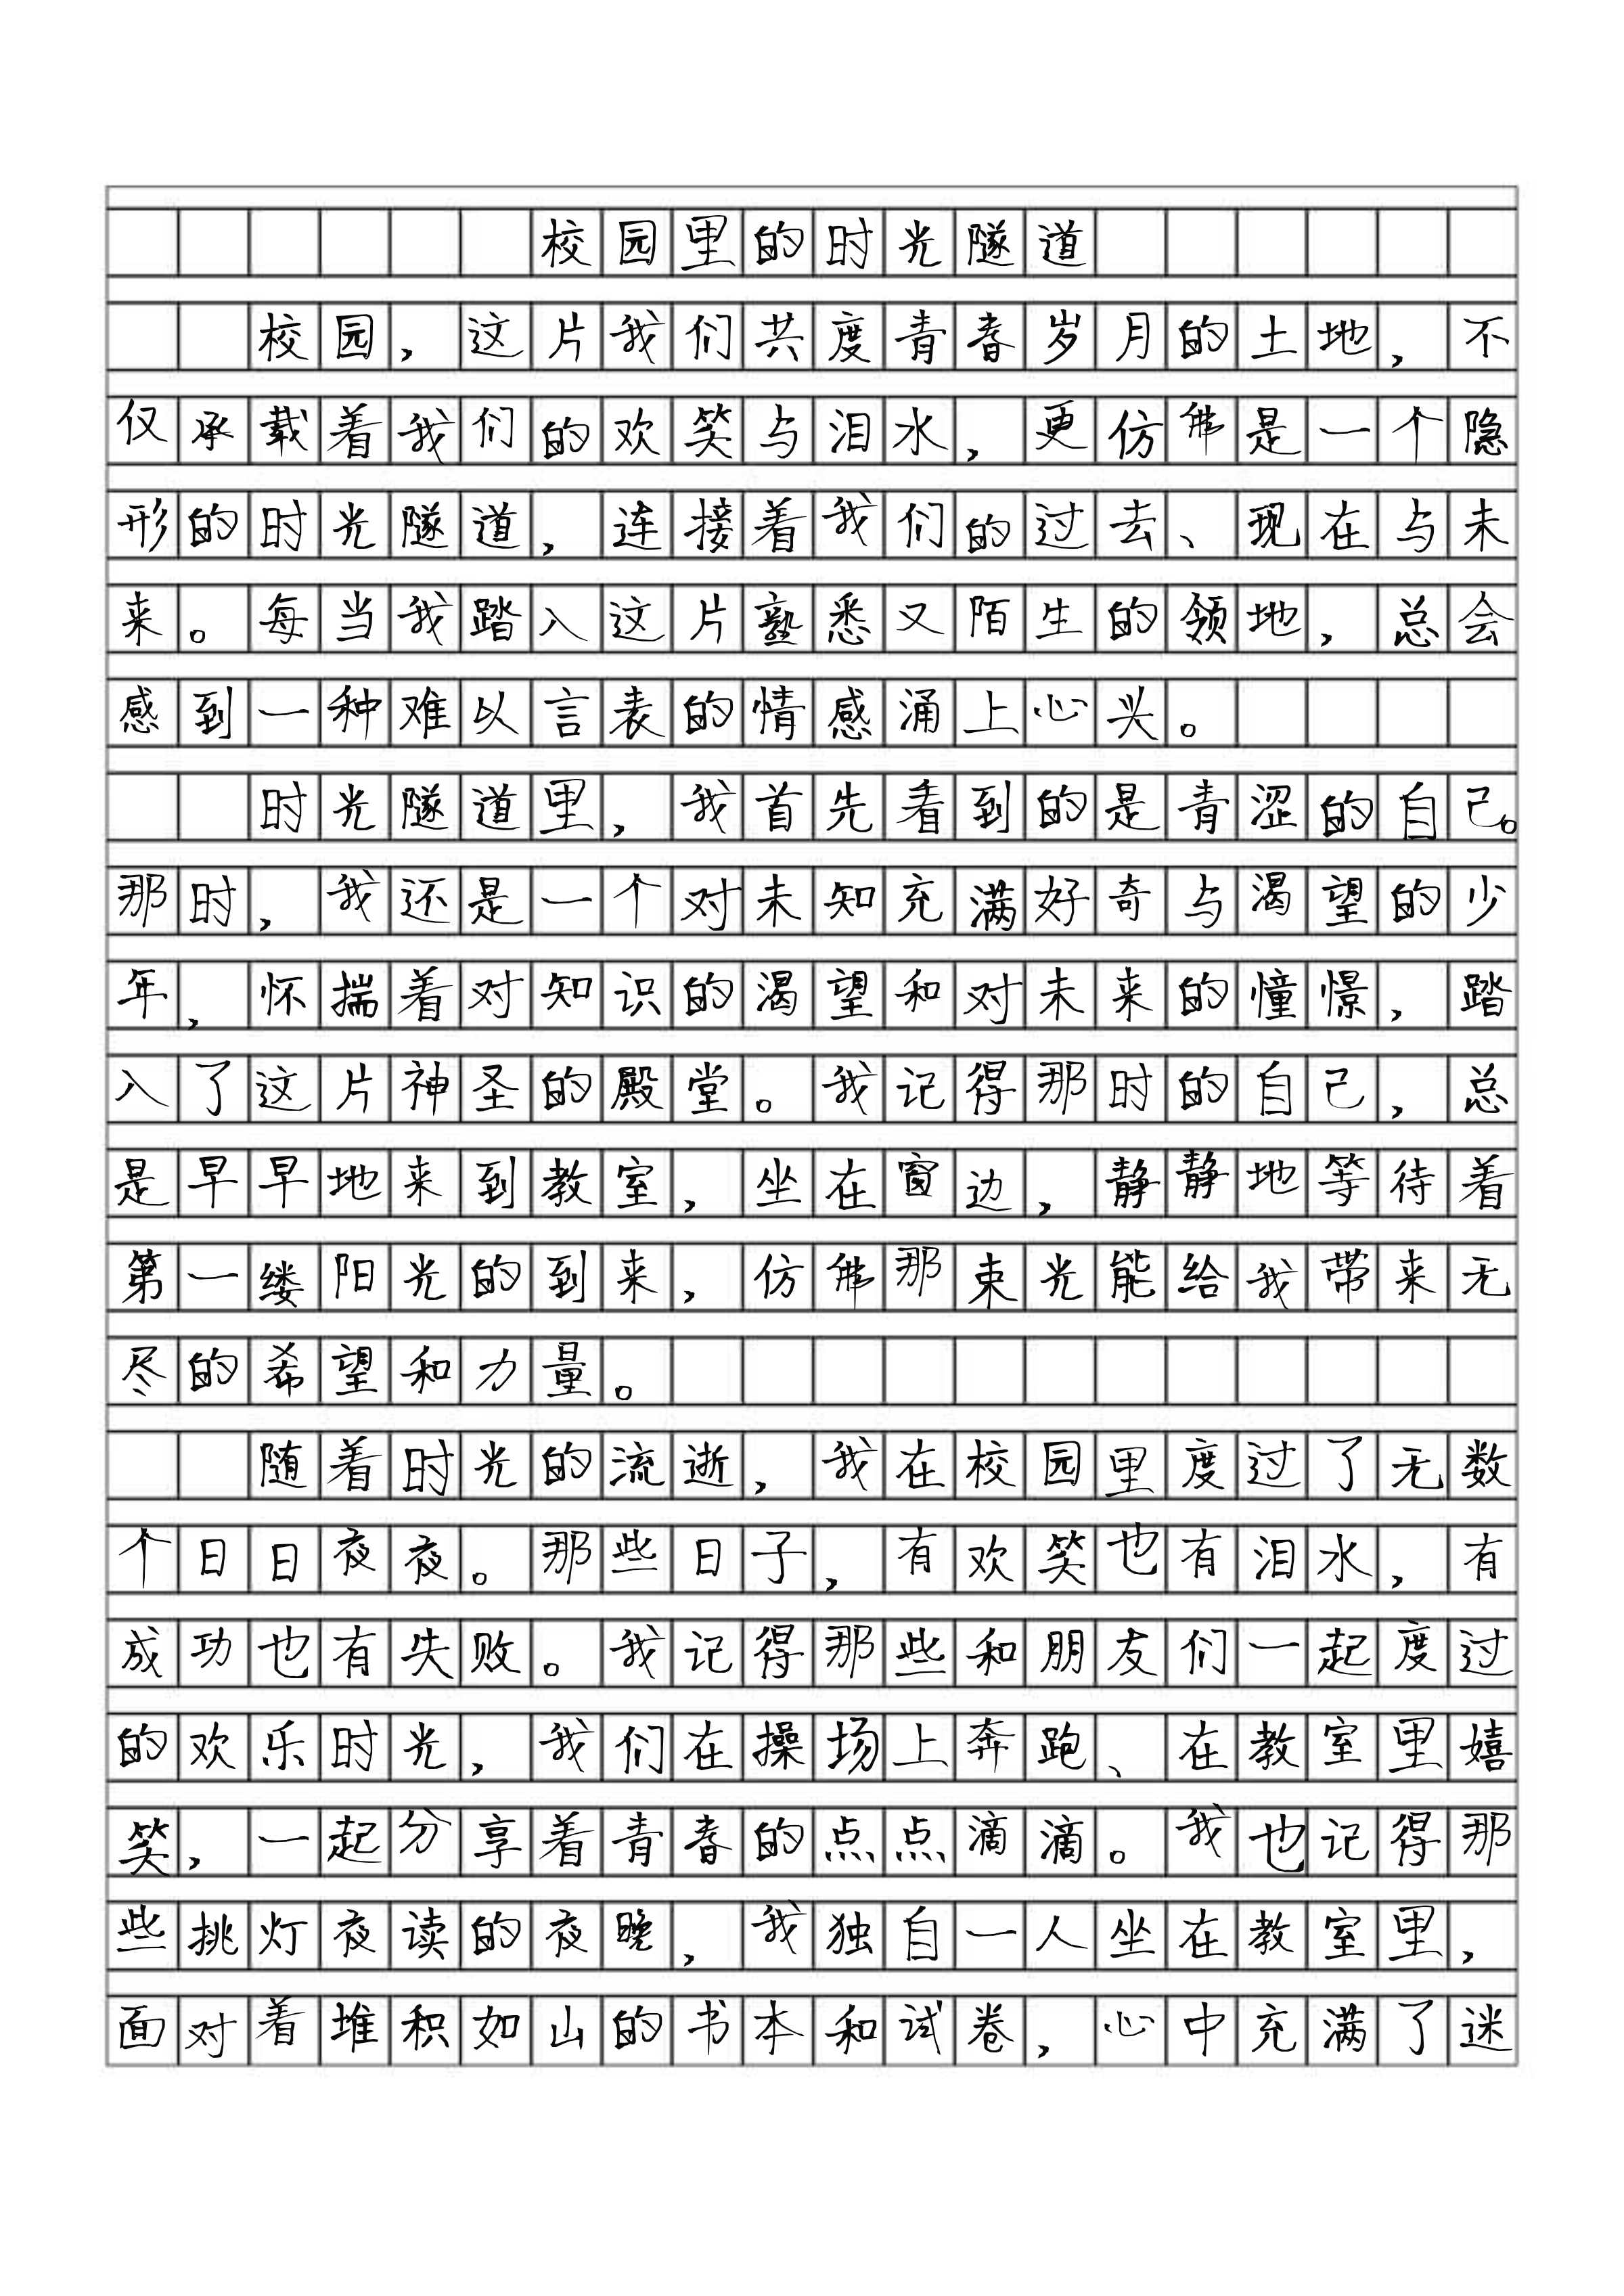 校园里的时光隧道
校园，这片我们共度青春岁月的土地，不
仅承载着我们的欢笑与泪水，更仿佛是一个隐
形的时光隧道，连接着我们的过去、现在与未
来。每当我踏入这片熟悉又陌生的领地，总会
感到一种难以言表的情感涌上心头。
时光隧道里，我首先看到的是青涩的自己。
那时，我还是一个对未知充满好奇与渴望的少
年，怀揣着对知识的渴望和对未来的憧憬，踏
入了这片神圣的殿堂。我记得那时的自己，总
是早早地来到教室，坐在窗边，静静地等待着
第一缕阳光的到来，仿佛那束光能给我带来无
尽的希望和力量。
随着时光的流逝，我在校园里度过了无数
个日日夜夜。那些日子，有欢笑也有泪水，有
成功也有失败。我记得那些和朋友们一起度过
的欢乐时光，我们在操场上奔跑、在教室里嬉
笑，一起分享着青春的点点滴滴。我也记得那
些挑灯夜读的夜晚，我独自一人坐在教室里，
面对着堆积如山的书本和试卷，心中充满了迷